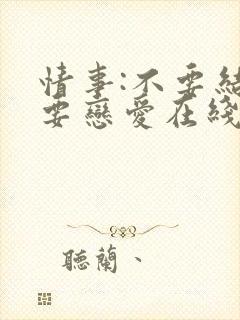 情事:不要結
要戀愛在綫
聽蘭、